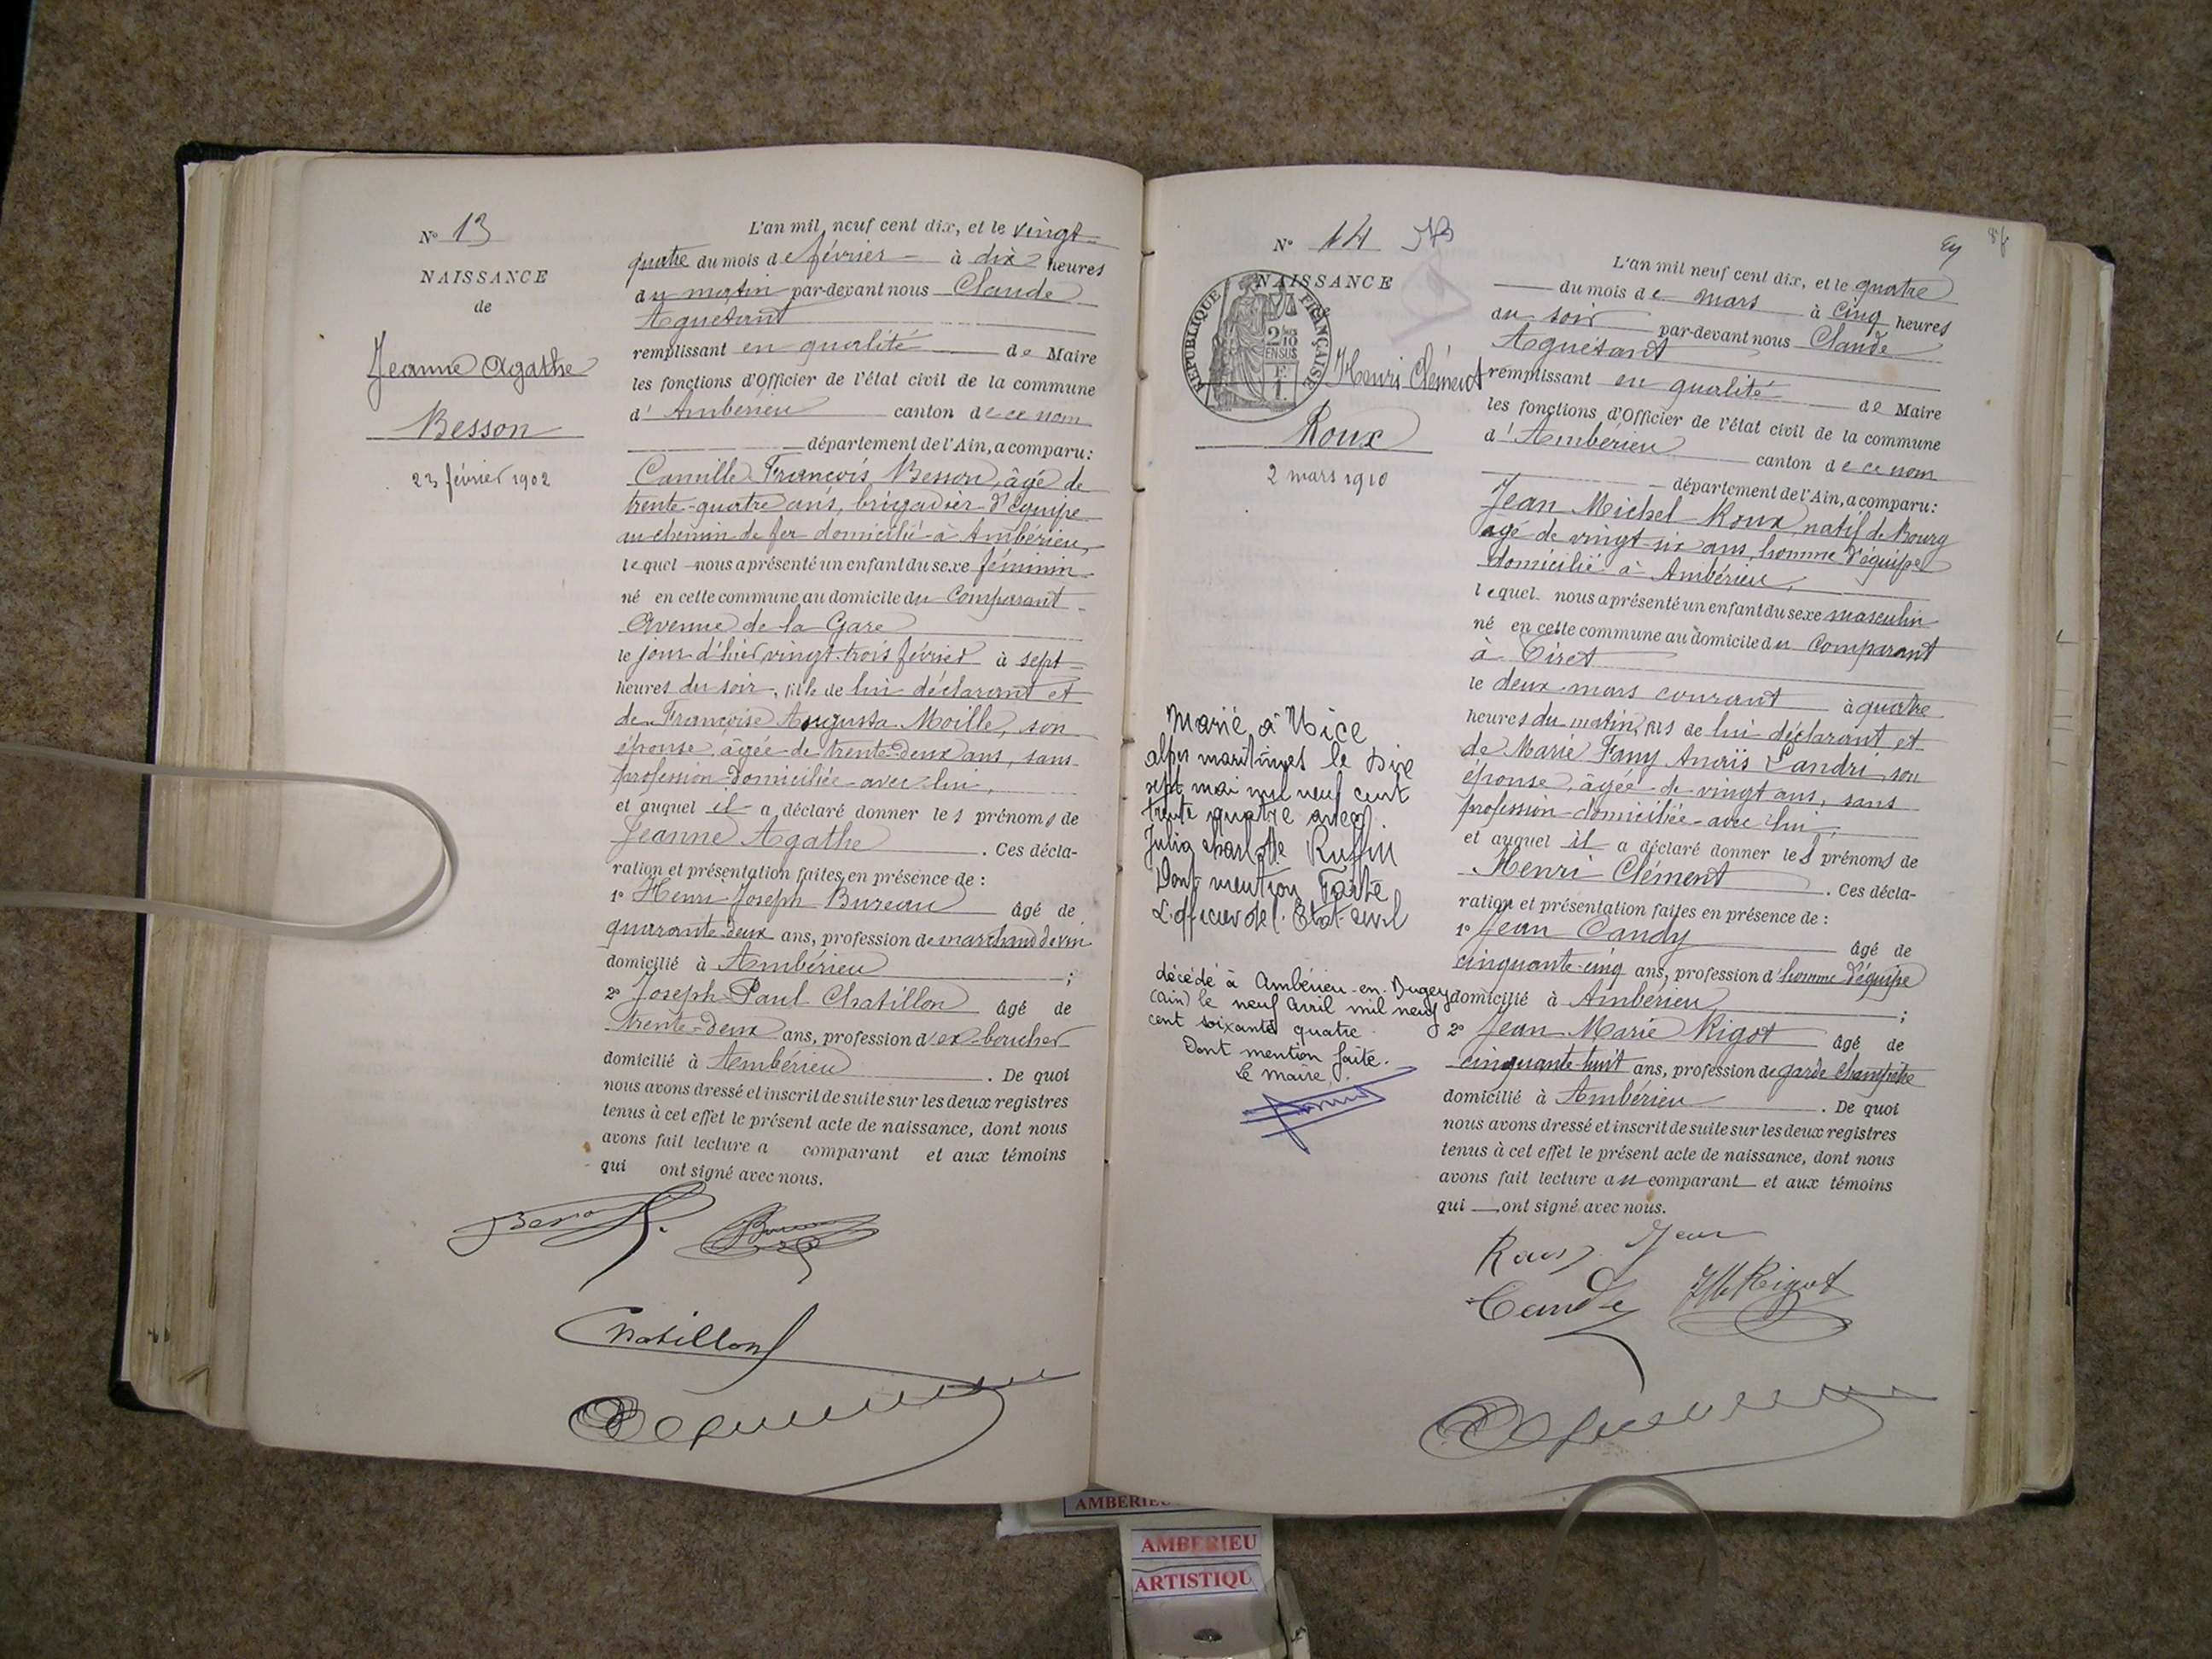 N° 13
NAISSANCE
de
Jeanne Agathe
Besson
23 février 1902
L'an mil neuf cent dix, et le vingt-
quatre du mois de février à dix heures
du matin par-devant nous Claude
Aguétant
remplissant en qualité de Maire
les fonctions d'Officier de l'état civil de la commune
d'Ambérieu canton de ce nom
département de l'Ain, a comparu:
Camille François Besson, âgé de
trente-quatre ans, brigadier d'équipe
au chemin de fer domicilié à Ambérieu,
lequel nous a présenté un enfant du sexe féminin
né en cette commune au domicile du Comparant
Avenue de la Gare
le jour d'hier vingt-trois février à sept
heures du soir, fille de lui déclarant et
de Françoise Augusta Moille, son
épouse, âgée de trente-deux ans, sans
profession domiciliée avec lui,
et auquel il a déclaré donner les prénoms de
Jeanne Agathe. Ces décla-
ration et présentation faites en présence de :
1° Henri Joseph Bureau âgé de
quarante deux ans, profession de marchand de vin
domicilié à Ambérieu ;
2° Joseph Paul Chatillon âgé de
trente-deux ans, profession d'ex-boucher
domicilié à Ambérieu. De quoi
nous avons dressé et inscrit de suite sur les deux registres
tenus à cet effet le présent acte de naissance, dont nous
avons fait lecture a comparant et aux témoins
qui ont signé avec nous.
Chatillon
N° 14
NAISSANCE
RÉPUBLIQUE FRANÇAISE
2/10 EN SUS
Henri Clément
Roux
2 mars 1910
Marié à Nice
alpes maritimes le dix
sept mai mil neuf cent
trente quatre avec
Julia Charlotte Ruffin
Dont mention faite
L'officier de l'Etat-civil
décédé à Ambérieu-en-Bugey
(ain) le neuf avril mil neuf
cent soixante quatre
Dont mention faite.
Le maire.
L'an mil neuf cent dix, et le quatre
du mois de mars à cinq heures
du soir par-devant nous Claude
Aguétant
remplissant en qualité de Maire
les fonctions d'Officier de l'état civil de la commune
d'Ambérieu canton de ce nom
département de l'Ain, a comparu:
Jean Michel Roux, natif de Bourg
âgé de vingt-six ans, homme d'équipe
domicilié à Ambérieu,
lequel nous a présenté un enfant du sexe masculin
né en cette commune au domicile du Comparant
à Tiret
le deux mars courant à quatre
heures du matin, fils de lui déclarant et
de Marie Fany Landri, son
épouse, âgée de vingt ans, sans
profession domiciliée avec lui,
et auquel il a déclaré donner les prénoms de
Henri Clément. Ces décla-
ration et présentation faites en présence de :
1° Jean Candy âgé de
cinquante-cinq ans, profession d'homme d'équipe
domicilié à Ambérieu ;
2° Jean Marie Rigot âgé de
cinquante-huit ans, profession de garde champêtre
domicilié à Ambérieu. De quoi
nous avons dressé et inscrit de suite sur les deux registres
tenus à cet effet le présent acte de naissance, dont nous
avons fait lecture au comparant et aux témoins
qui ont signé avec nous.
Roux Jean
Candy JM Rigot
AMBERIEU
AMBERIEU
ARTISTIQU